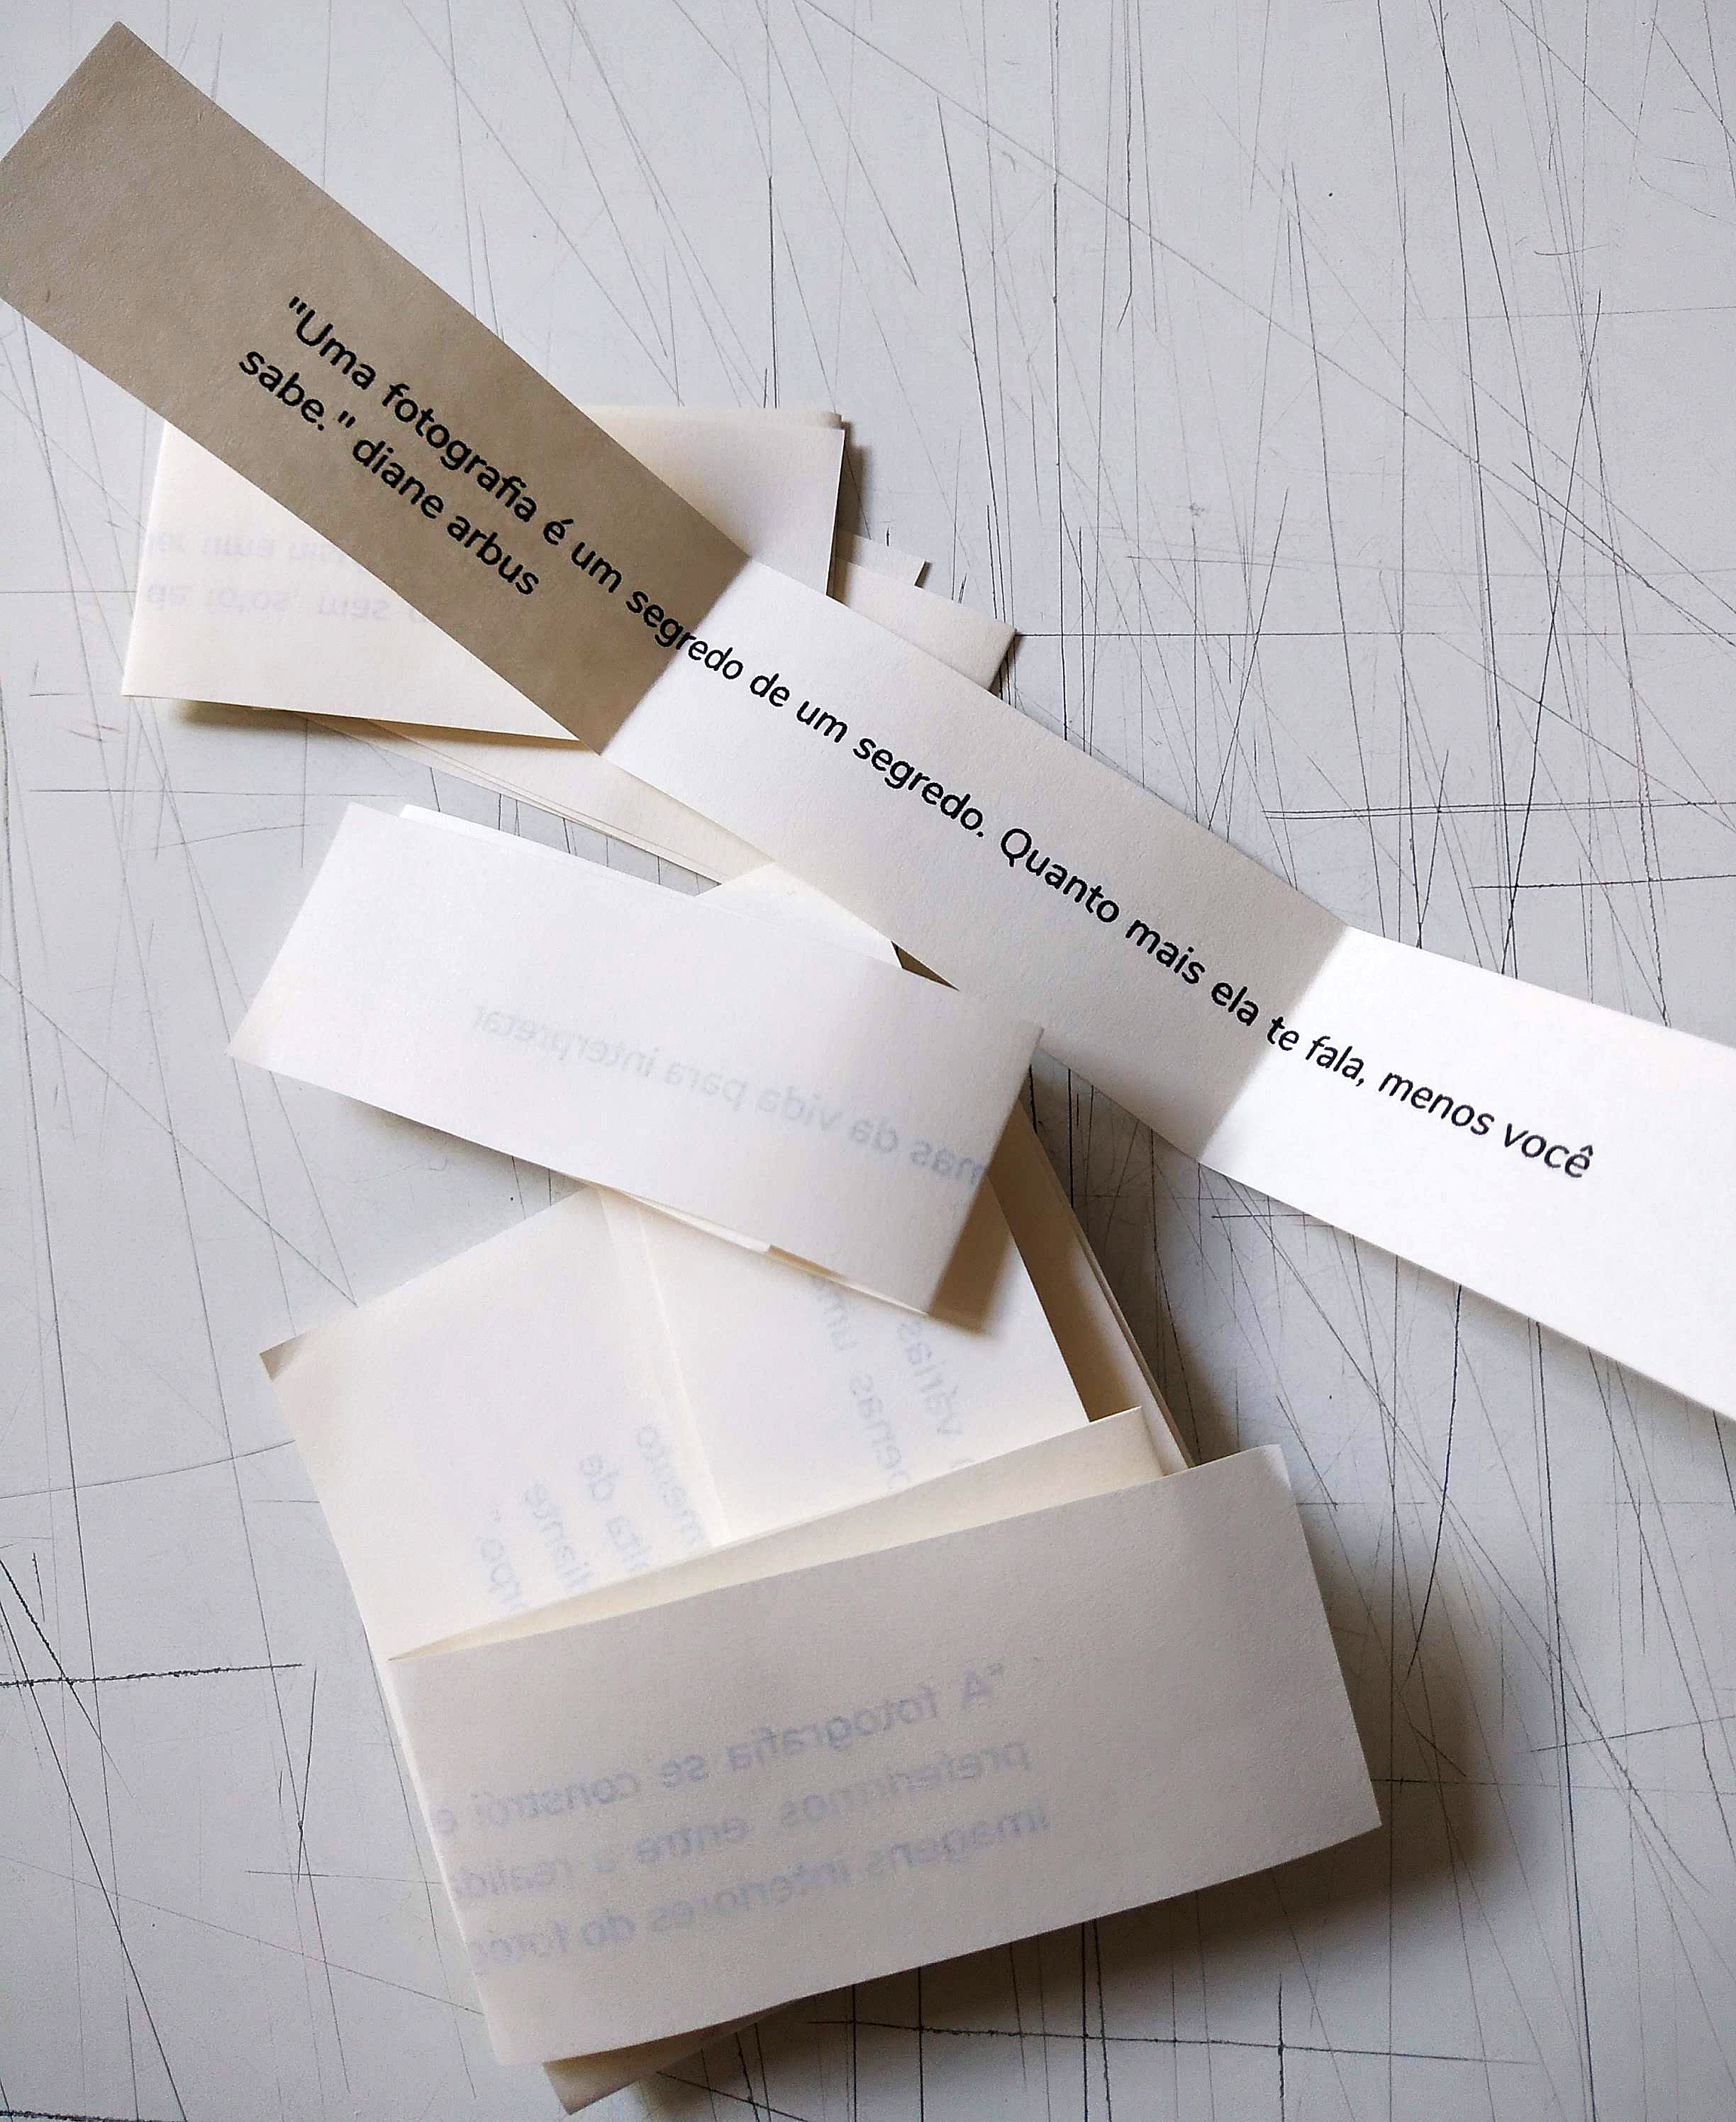 "Uma fotografia é um segredo de um segredo. Quanto mais ela te fala, menos você
sabe." diane arbus
uma
de fotos, mas
mas da vida para interpretar
várias
penas um
mento
de
diante
"A fotografia se constrói
preferirmos, entre a
imagens interiores do